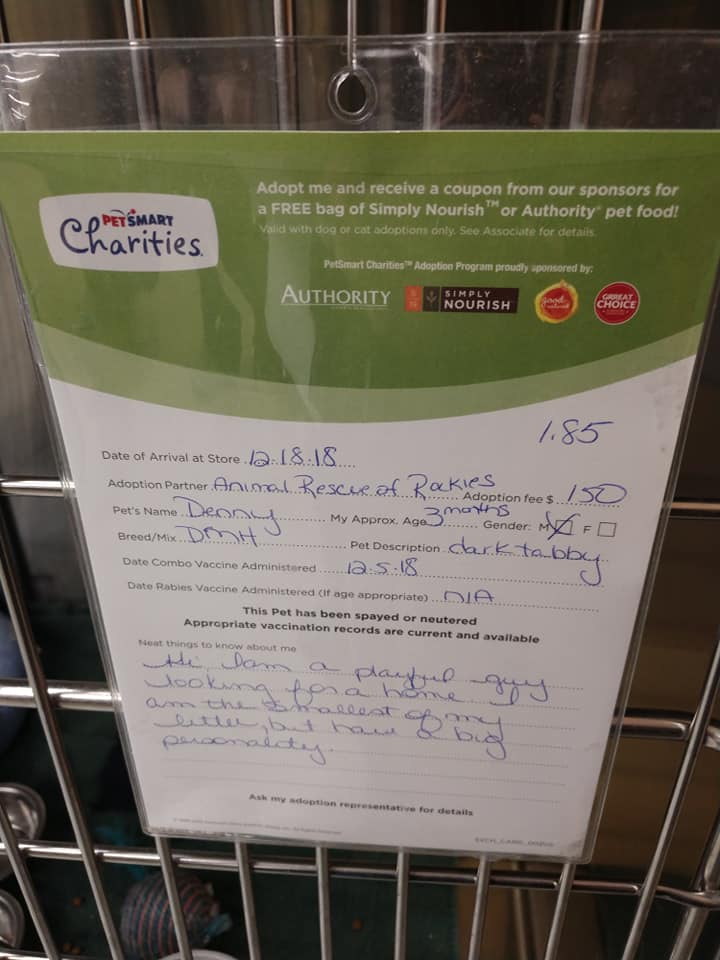 Adopt me and receive a coupon from our sponsors for
a FREE bag of Simply Nourish™ or Authority® pet food!
Valid with dog or cat adoptions only. See Associate for details.
PETSMART
Charities
PetSmart Charities™ Adoption Program proudly sponsored by:
AUTHORITY
SIMPLY
NOURISH
GRREAT
CHOICE
1.85
Date of Arrival at Store 12.18.18
Adoption Partner Animal Rescue of Rockies Adoption fee $ 150
Pet's Name Denny My Approx. Age 3 months Gender: M F
Breed/Mix DMH Pet Description dark tabby
Date Combo Vaccine Administered 12.5.18
Date Rabies Vaccine Administered (If age appropriate) N/A
This Pet has been spayed or neutered
Appropriate vaccination records are current and available
Neat things to know about me
Hi, I am a playful guy
looking for a home. I
am the smallest of my
litter, but have a big
personality.
Ask my adoption representative for details